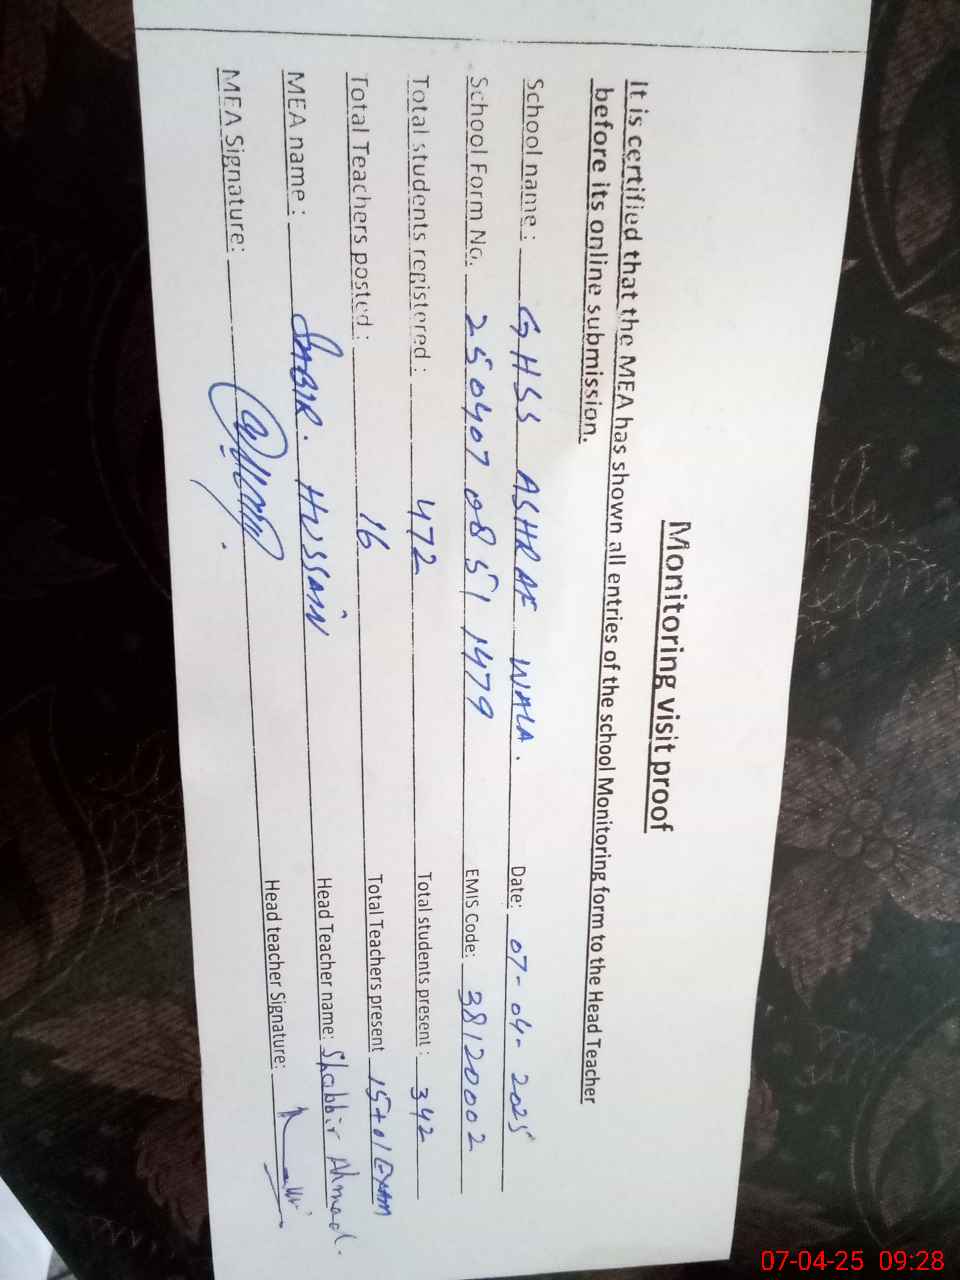 Monitoring visit proof
It is certified that the MEA has shown all entries of the school Monitoring form to the Head Teacher
before its online submission.
School name: GHSS ASHRAF WALA. Date: 07-04-2025
School Form No. 250407 08 51 1479 EMIS Code: 38120002
Total students registered: 472 Total students present: 342
Total Teachers posted: 16 Total Teachers present 15+01 EXAM
MEA name: SABIR. HUSSAIN Head Teacher name: Shabbir Ahmad.
MEA Signature: Head teacher Signature:
07-04-25 09:28